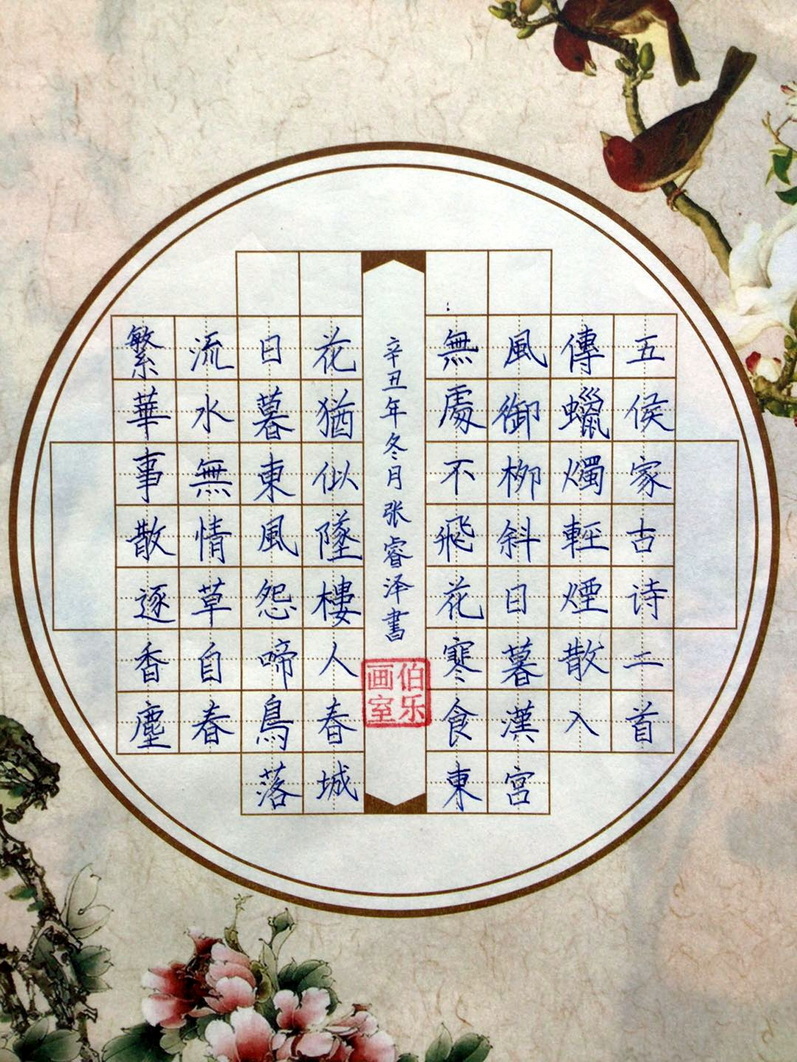 繁華事散逐香塵
流水無情草自春
日暮東風怨啼鳥落
花猶似墜樓人春城
無處不飛花寒食東
風御柳斜日暮漢宮
傳蠟燭輕煙散入
五侯家古诗二首
辛丑年冬月张睿泽書
伯乐
画室